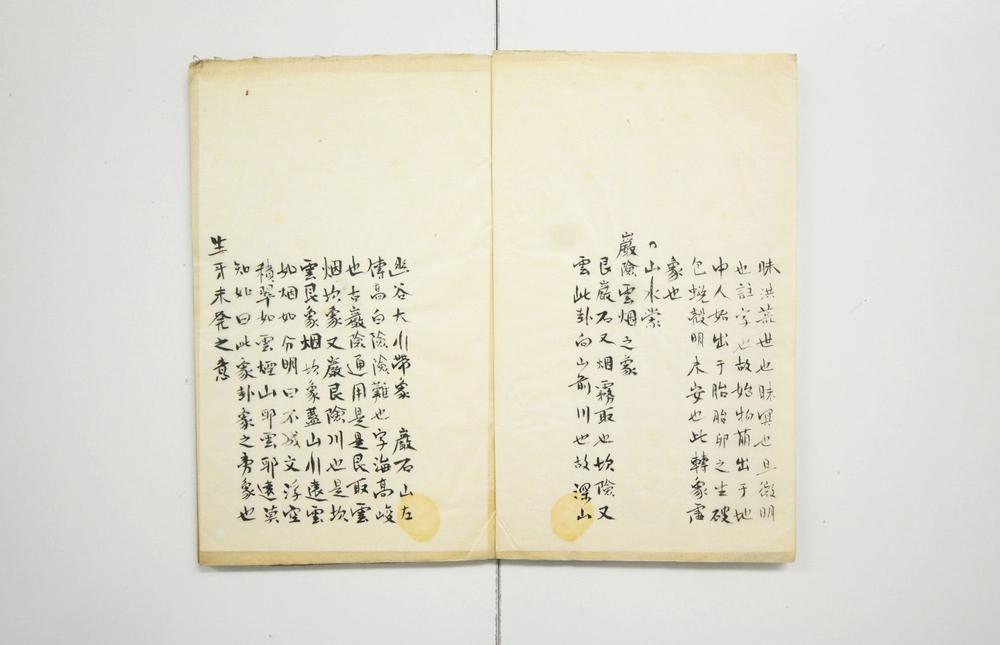 昧洪荒世也昧冥也旦微明
也註字也故始物萠出于地
中人始出于胎胎卵之生破
包蛻殼明未安也此轉象
象也
山水蒙
巖險雲烟之象
艮巖石又烟霧取也坎險又
雲此卦向山前川也故深山
幽谷大川帶象 巖石山左
傳高曰險險難也字海高峻
也古巖險通用是是艮取雲
烟坎象又巖艮險川也是坎
雲艮象烟坎象蓋山川遠雲
如烟如分明曰不成文浮空
積翠如雲煙山耶雲耶遠莫
知如曰此象卦象之旁象也
生牙未発之意